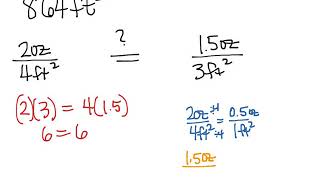 864ft²
2oz/4ft² =? 1.5oz/3ft²
(2)(3) = 4(1.5)
6 = 6
2oz÷4/4ft²÷4 = 0.5oz/1ft²
1.5oz